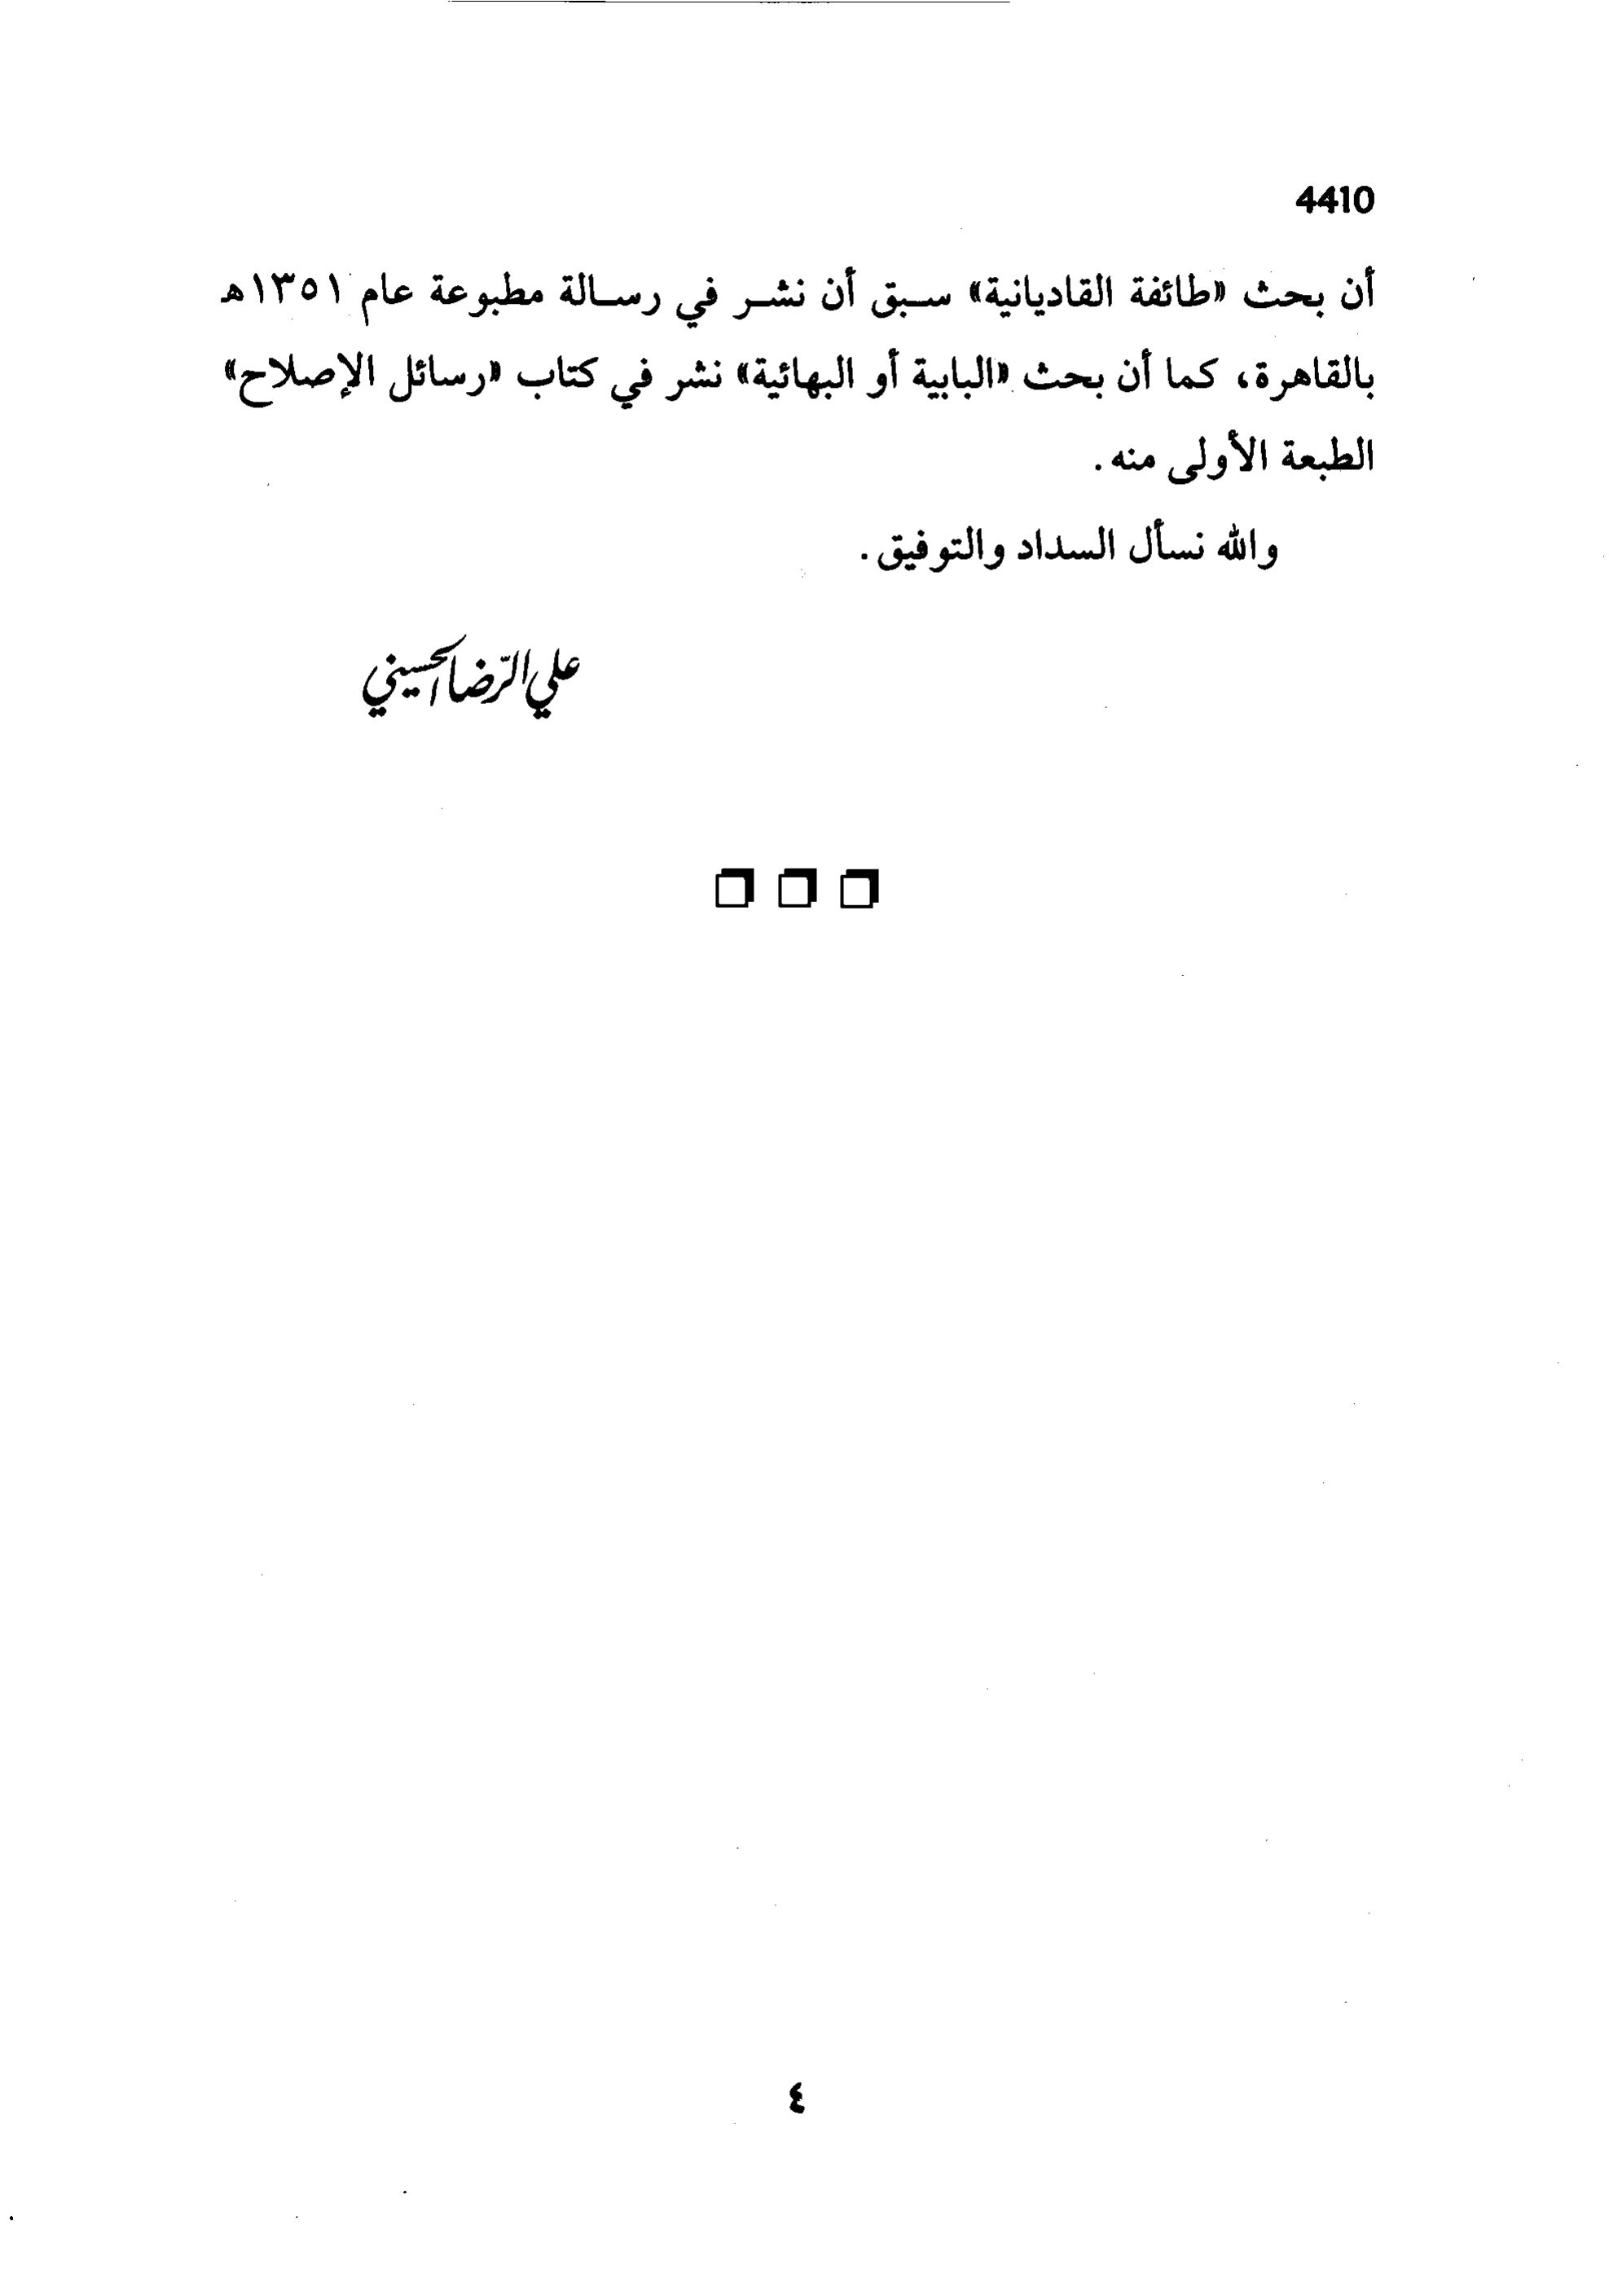 4410
أن بحث «طائفة القاديانية» سبق أن نشر في رسالة مطبوعة عام ١٣٥١هـ
بالقاهرة، كما أن بحث «البابية أو البهائية» نشر في كتاب «رسائل الإصلاح»
الطبعة الأولى منه.
والله نسأل السداد والتوفيق.
علي الرّضا الحسيني
٤